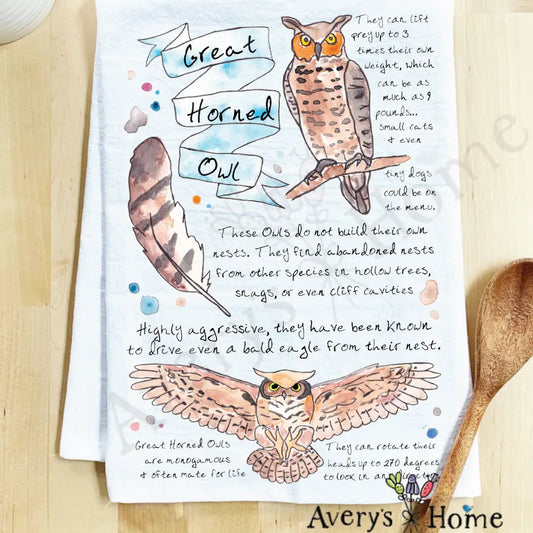 Great
Horned
Owl
They can lift
prey up to 3
times their own
weight, which
can be as
much as 9
pounds...
small cats
& even
tiny dogs
could be on
the menu.
These Owls do not build their own
nests. They find abandoned nests
from other species in hollow trees,
snags, or even cliff cavities
Highly aggressive, they have been known
to drive even a bald eagle from their nest.
Great Horned Owls
are monogamous
& often mate for life
They can rotate their
heads up to 270 degrees
to look in any
Avery's Home